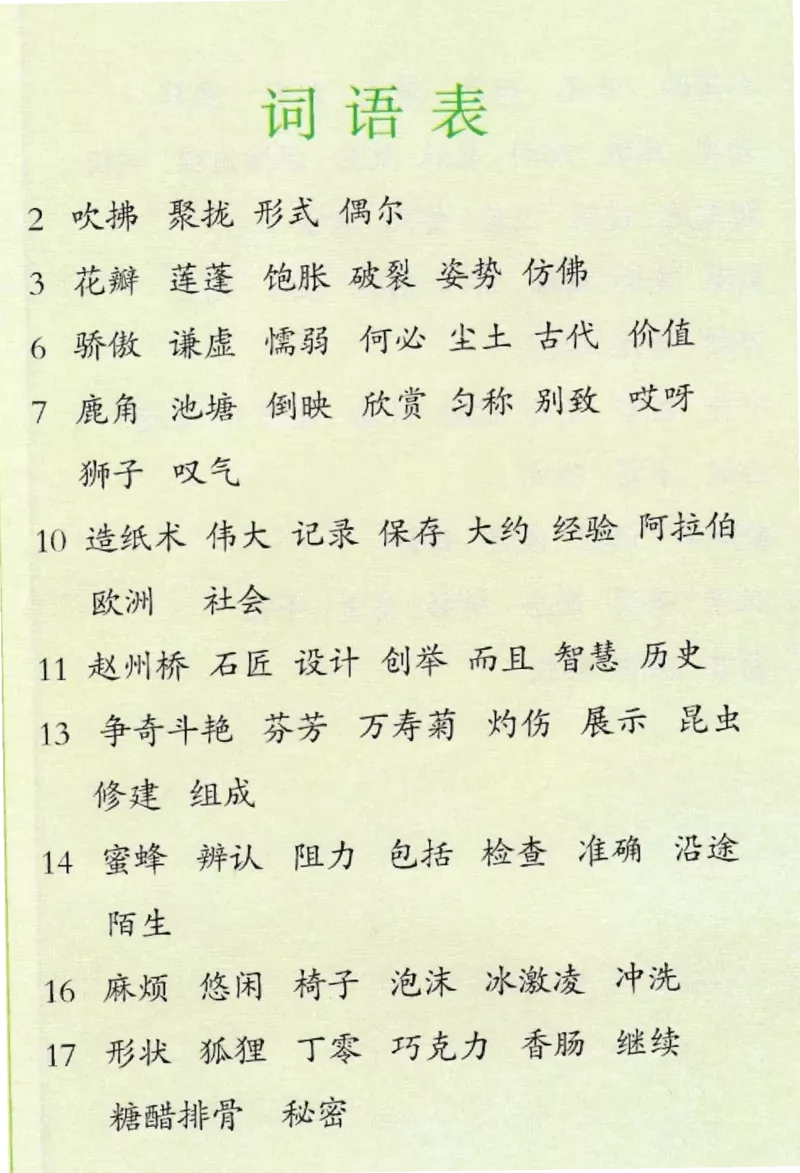 词语表
2 吹拂 聚拢 形式 偶尔
3 花瓣 莲蓬 饱胀 破裂 姿势 仿佛
6 骄傲 谦虚 懦弱 何必 尘土 古代 价值
7 鹿角 池塘 倒映 欣赏 匀称 别致 哎呀
狮子 叹气
10 造纸术 伟大 记录 保存 大约 经验 阿拉伯
欧洲 社会
11 赵州桥 石匠 设计 创举 而且 智慧 历史
13 争奇斗艳 芬芳 万寿菊 灼伤 展示 昆虫
修建 组成
14 蜜蜂 辨认 阻力 包括 检查 准确 沿途
陌生
16 麻烦 悠闲 椅子 泡沫 冰激凌 冲洗
17 形状 狐狸 丁零 巧克力 香肠 继续
糖醋排骨 秘密